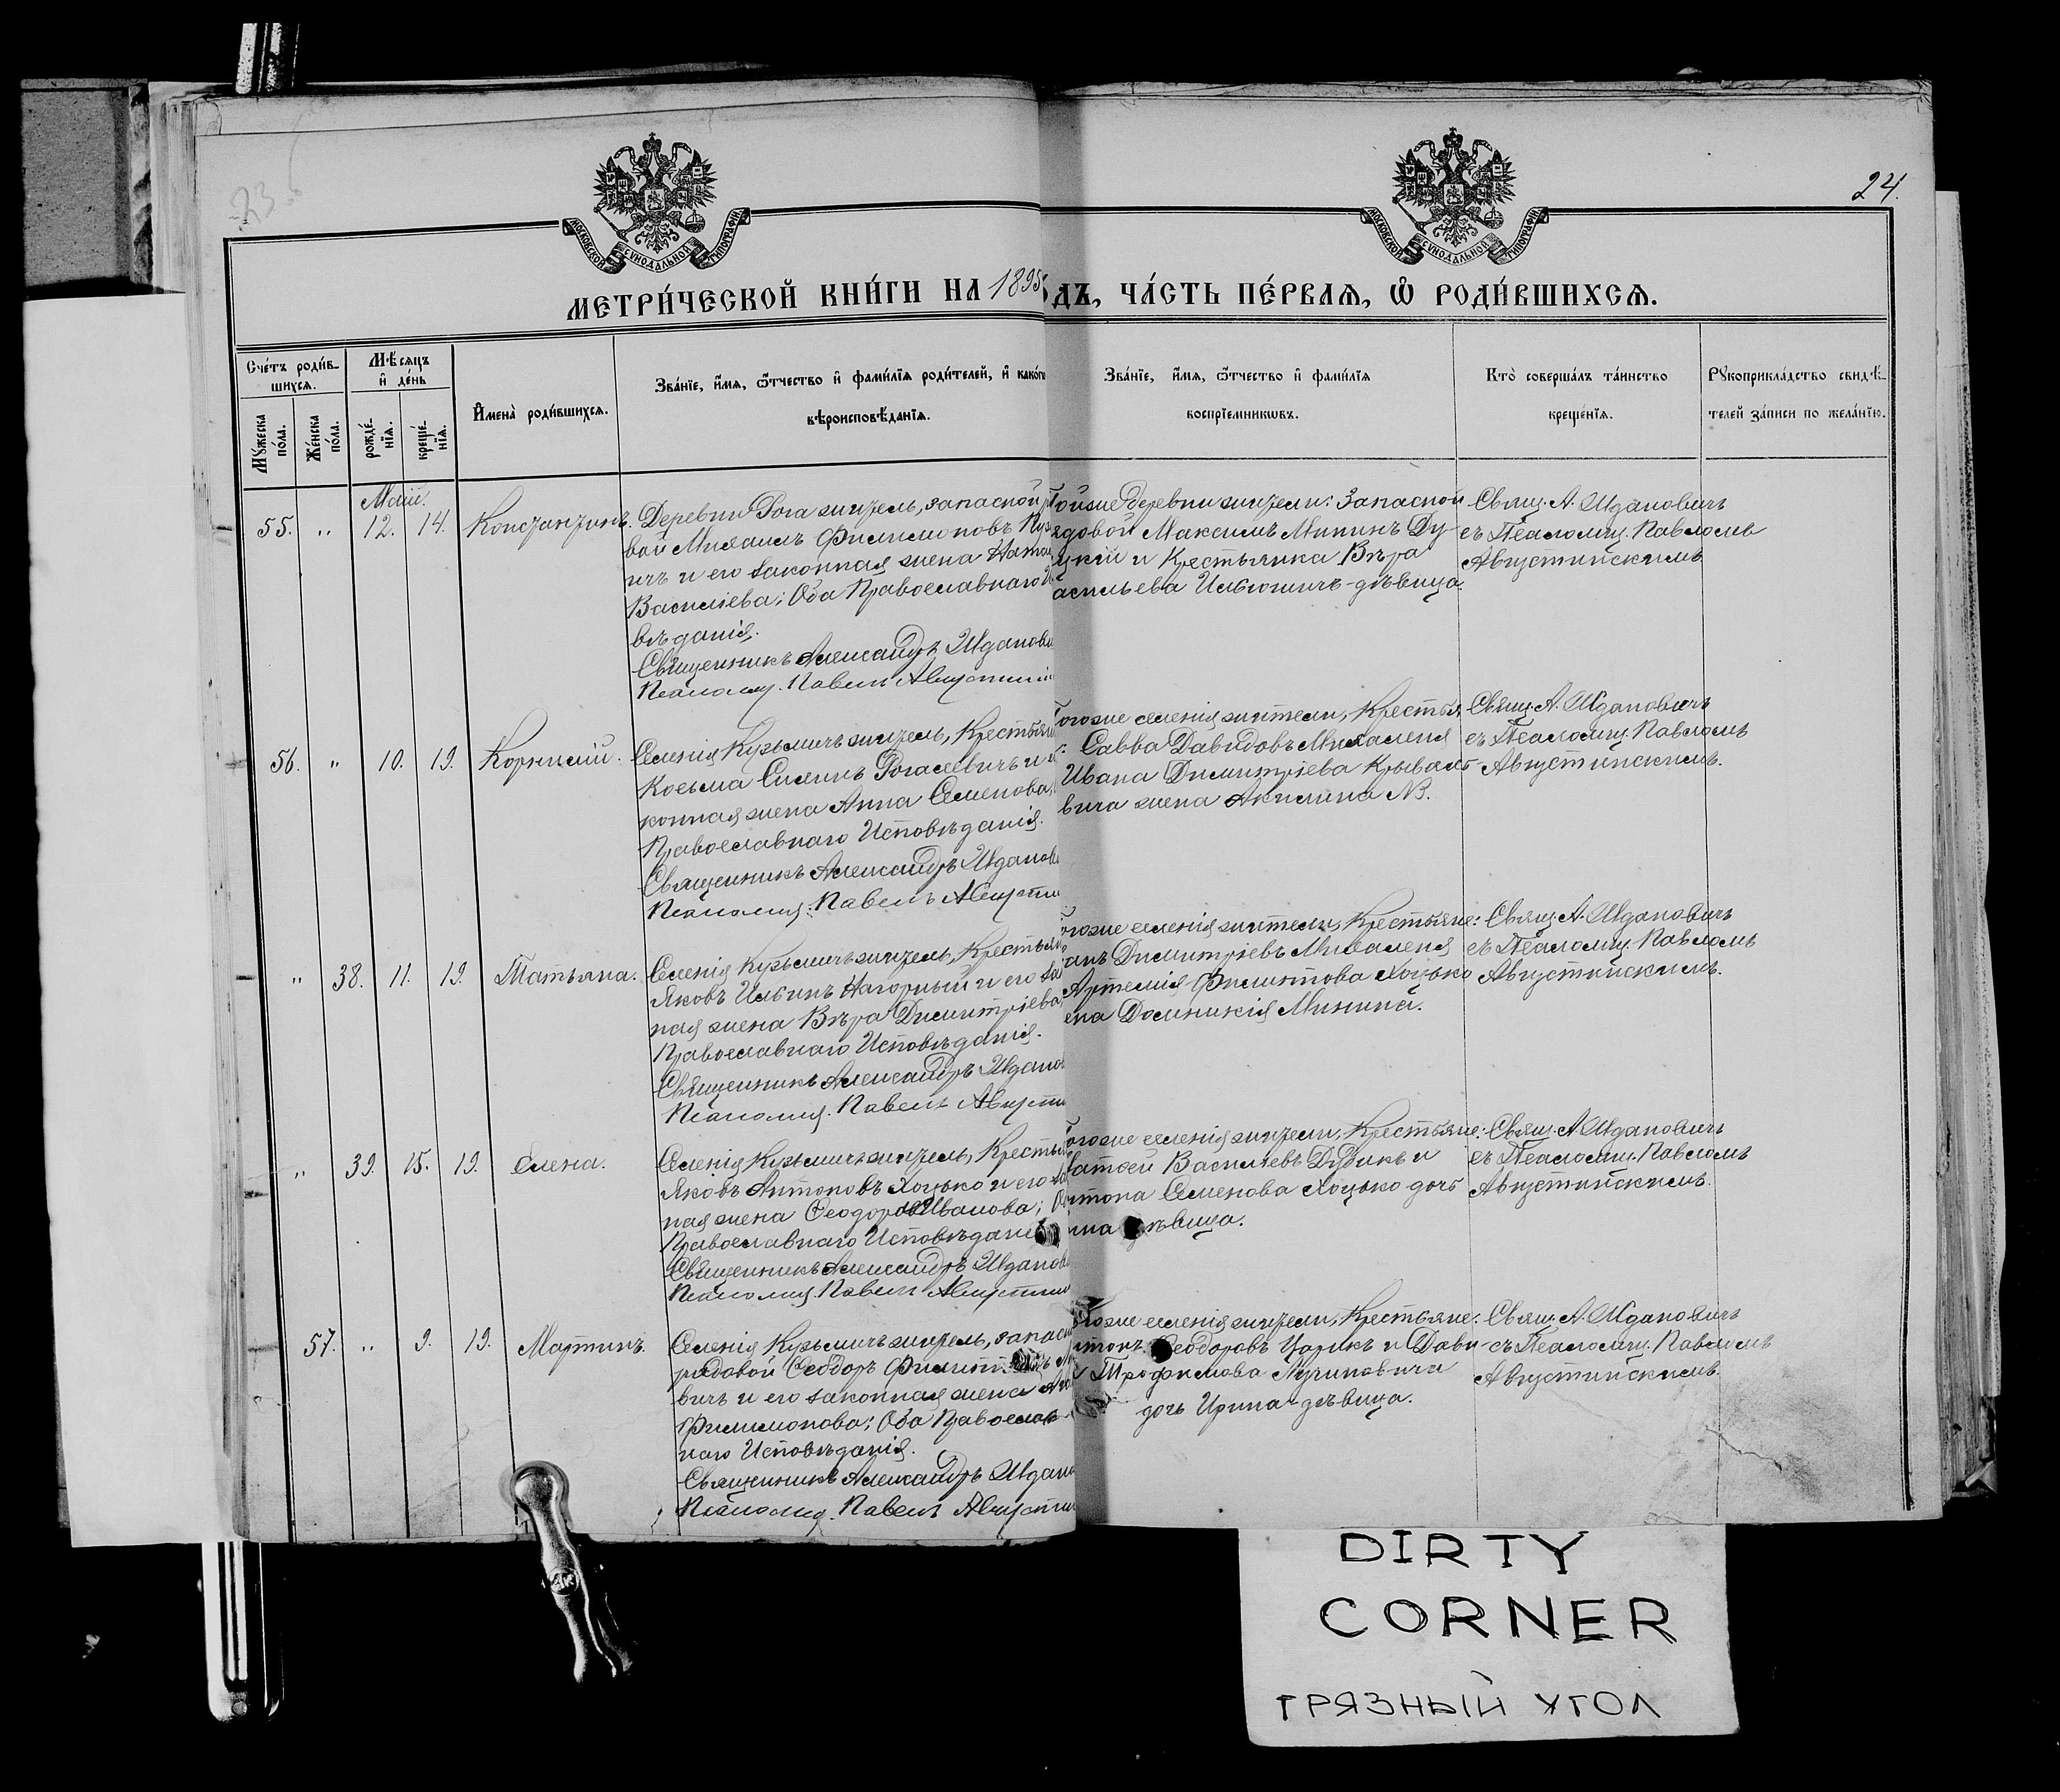 24.
МОСКОВСКОЙ СѴНОДАЛЬНОЙ ТИПОГРАФІИ
МОСКОВСКОЙ СѴНОДАЛЬНОЙ ТИПОГРАФІИ
МЕТРИ́ЧЕСКОЙ КНИ́ГИ НА 1895 ДЪ, ЧА́СТЬ ПЕ́РВАѦ, Ѽ РОДИ́ВШИХСѦ.
Сче́тъ роди́в-
шихсѧ.
Мꙋ́жеска по́ла.
Же́нска по́ла.
Мѣ́сѧцъ
и҆ де́нь
рожде́-нїѧ.
креще́-нїѧ.
И҆мена̀ роди́вшихсѧ.
Зва́нїе, и҆́мѧ, ѻ҆́тчество и҆ фами́лїѧ роди́телей, и҆ како́гѡ
вѣроисповѣ́данїѧ.
Зва́нїе, и҆́мѧ, ѻ҆́тчество и҆ фами́лїѧ
воспрїе́мникѡвъ.
Кто̀ соверша́лъ та́инство
креще́нїѧ.
Рꙋкоприкла́дство свидѣ́-
телей за́писи по жела́нїю.
Май.
55. " 12. 14. Константинъ.
Деревни Рога житель, запасной
вой Михаилъ Филимоновъ
ичъ и его законная жена
Васильева; Оба Православнаго
вѣданія.
Священникъ Александръ Жданови
Псаломщ. Павелъ Августин
деревни жители: Запасной
Максимъ Мининъ Ду-
и Крестьянка Вѣра
Ильюшичъ-дѣвица.
Свящ. А. Ждановичъ
съ Псаломщ. Павломъ
Августинскимъ.
56. " 10. 19. Корнилій.
Селенія Кузьмичъ житель, Крестьян
Косьма Силинъ Рогалевичъ и
конная жена Анна Семенова,
Православнаго Исповѣданія.
Священникъ Александръ Жданов
Псаломщ. Павелъ Августи
селенія жители, Крестья
Савва Давидовъ Михаленя
Ивана Димитріева
вича жена Акилина
Свящ. А. Ждановичъ
съ Псаломщ. Павломъ
Августинскимъ.
" 38. 11. 19. Татьяна.
Селенія Кузьмичъ житель, Крестьян
Яковъ Ильинъ Нагорный и его за
ная жена Вѣра Димитріева,
Православнаго Исповѣданія.
Священникъ Александръ Ждано
Псаломщ. Павелъ Августи
селенія жители, Крестьяне:
Димитріевъ Михаленя
Артемія Филиппова Хоцько
Доминикія Минина.
Свящ. А. Ждановичъ
съ Псаломщ. Павломъ
Августинскимъ.
" 39. 15. 19. Елена.
Селенія Кузьмичъ житель, Крестья
Яковъ Антоновъ Хоцько и его за
ная жена Ѳеодора Иванова;
Православнаго Исповѣдані
Священникъ Александръ Жданов
Псаломщ. Павелъ Августин
селенія жители, Крестьяне:
Васильевъ Дубикъ и
Семенова Хоцько дочь
дѣвица.
Свящ. А. Ждановичъ
съ Псаломщ. Павломъ
Августинскимъ.
57. " 9. 19. Мартинъ.
Селенія Кузьмичъ житель, запасн
рядовой Ѳеодоръ
вичъ и его законная жена
Филимонова; Оба Православ-
наго Исповѣданія.
Священникъ Александръ Ждано
Псаломщ. Павелъ Августи
селенія жители, Крестьяне:
Ѳеодоровъ Царикъ и Дави
Трофимова
дочь Ирина-дѣвица.
Свящ. А. Ждановичъ
съ Псаломщ. Павломъ
Августинскимъ.
DIRTY
CORNER
ГРЯЗНЫЙ УГОЛ